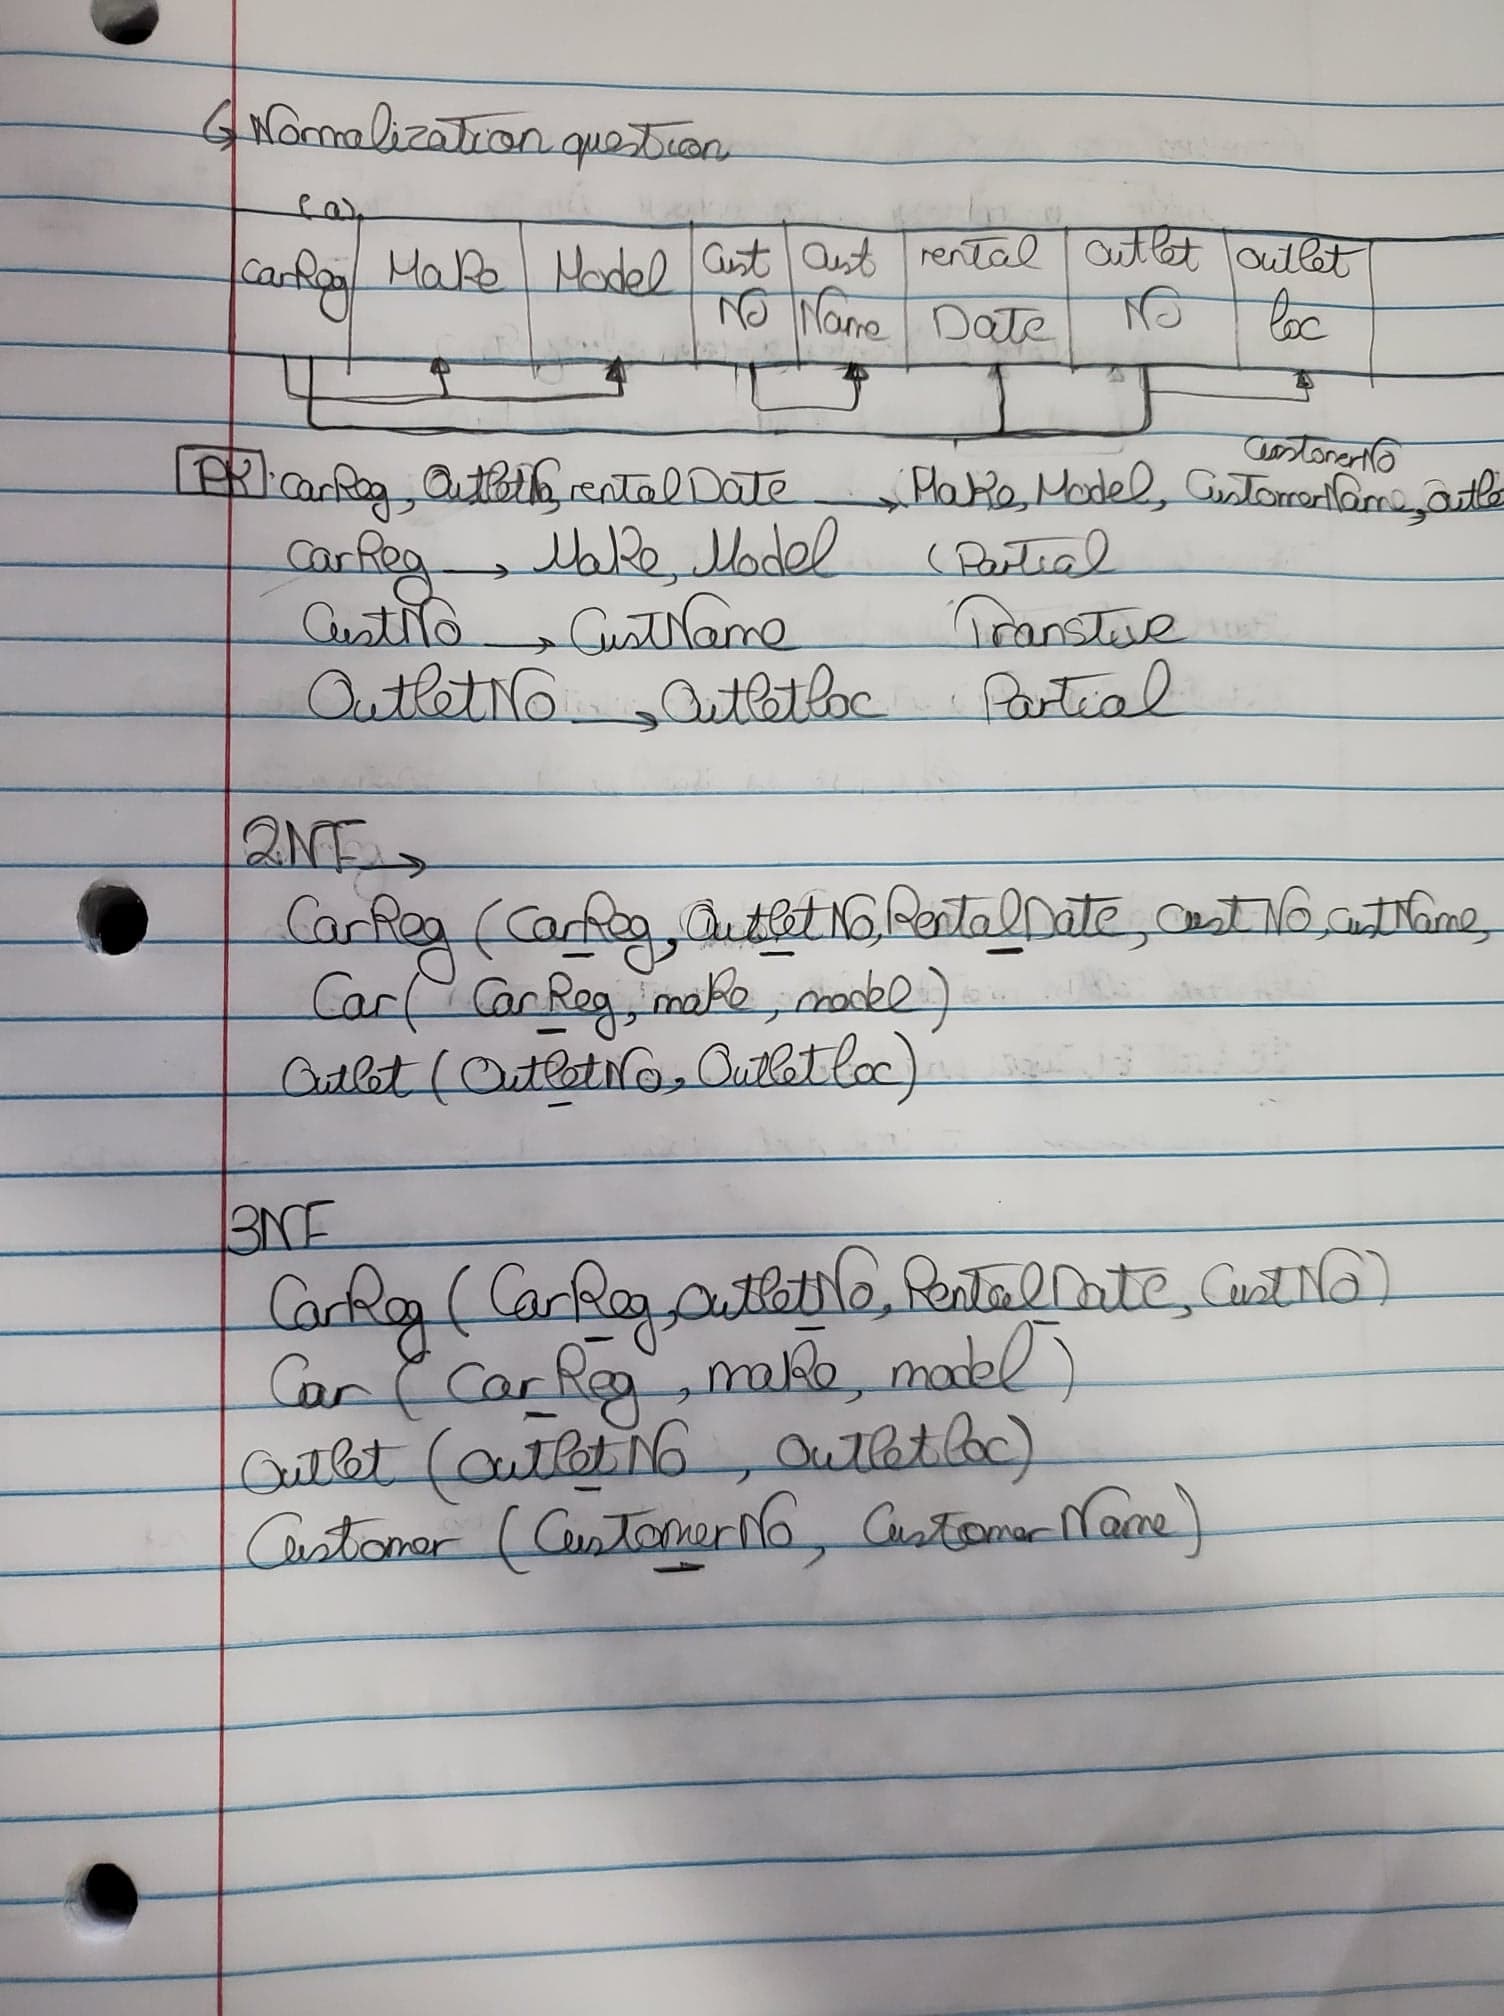 Normalization question
(a)
carReg Make Model Cust No Cust Name rental Date outlet No outlet loc
CustomerNo
PK: carReg, OutletNo, rentalDate → Make, Model, CustomerName, outle
carReg → Make, Model (Partial
CustNo → CustName Transtive
OutletNo → Outletloc Partial
2NF →
CarReg (CarReg, OutletNo, RentalDate, custNo, custName,
Car( CarReg, make, model)
Outlet (OutletNo, Outletloc)
3NF
CarReg (CarReg, outletNo, RentalDate, CustNo)
Car ( CarReg, make, model)
Outlet (OutletNo, outletloc)
Customer (CustomerNo, CustomerName)